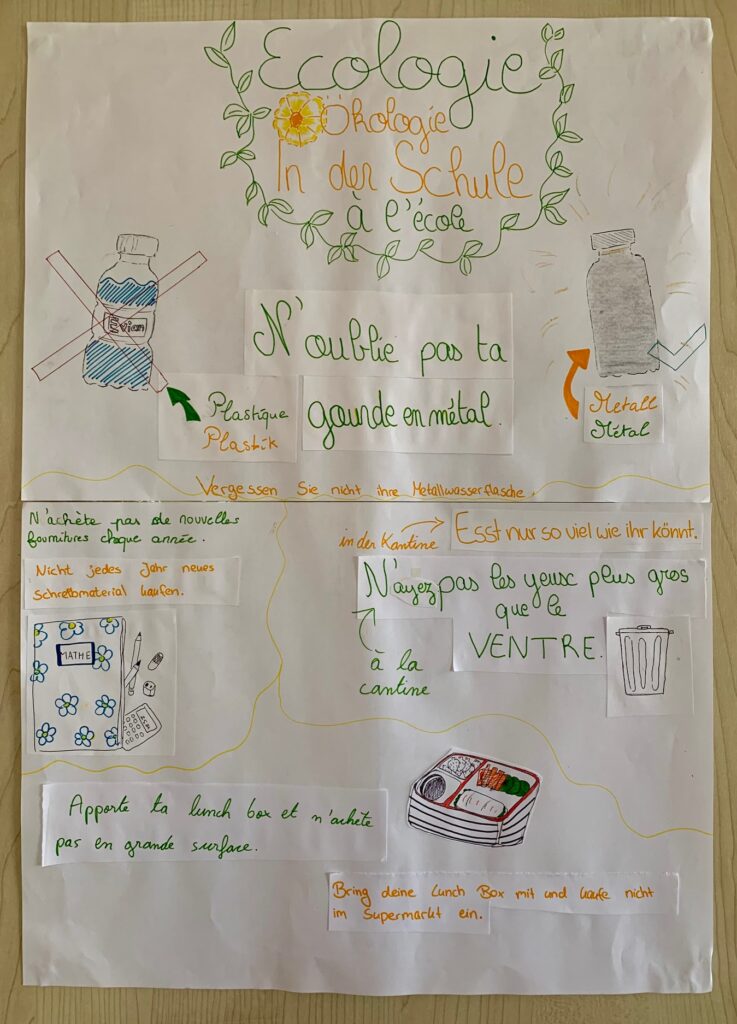 Ecologie
Ökologie
In der Schule
à l'école
Evian
N'oublie pas ta
gourde en métal.
Plastique
Plastik
Metall
Métal
Vergessen Sie nicht ihre Metallwasserflasche.
N'achète pas de nouvelles
fournitures chaque année.
Nicht jedes Jahr neues
Schreibmaterial kaufen.
MATHE
in der Kantine
Esst nur so viel wie ihr könnt.
N'ayez pas les yeux plus gros
que le
VENTRE.
à la
cantine
Apporte ta lunch box et n'achète
pas en grande surface.
Bring deine Lunch Box mit und kaufe nicht
im Supermarkt ein.